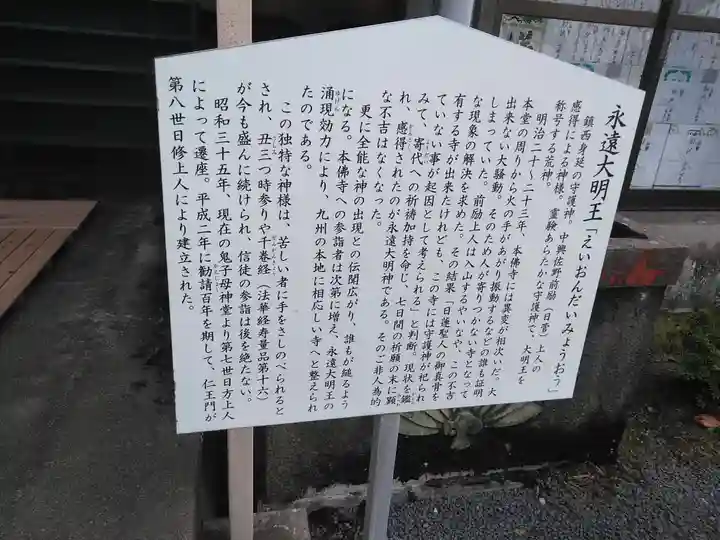 永遠大明王「えいおんだいみょうおう」
鎮西身延の守護神。中興佐野前励(日菅)上人の
感得による神様。霊験あらたかな守護神で、大明王を
称号する荒神。
明治二十~二十三年、本佛寺には異変が相次いだ。大
本堂の周りから火の手があがり振動するなどの誰も証明
出来ない大騒動。そのため人が寄りつかない寺となって
しまっていた。前励上人は入山するやいなや、この不吉
な現象の解決を求めた。その結果「日蓮聖人の御真骨を
有する寺が出来たけれども、この寺には守護神が祀られ
ていない事が起因として考えられる」と判断。現状を鑑
みて、寄代への祈祷加持を命じ、七日間の祈願の末に顕
れ、感得されたのが永遠大明神である。そのご非人為的
な不吉はなくなった。
更に全能な神の出現との伝聞広がり、誰もが縋るよう
になる。本佛寺への参詣者は次第に増え、永遠大明王の
涌現効力により、九州の本地に相応しい寺へと整えられ
たのである。
この独特な神様は、苦しい者に手をさしのべられると
され、丑三つ時参りや千巻経(法華経寿量品第十六)
が今も盛んに続けられ、信徒の参詣は後を絶たない。
昭和三十五年、現在の鬼子母神堂より第七世日方上人
によって遷座。平成二年に勧請百年を期して、仁王門が
第八世日修上人により建立された。